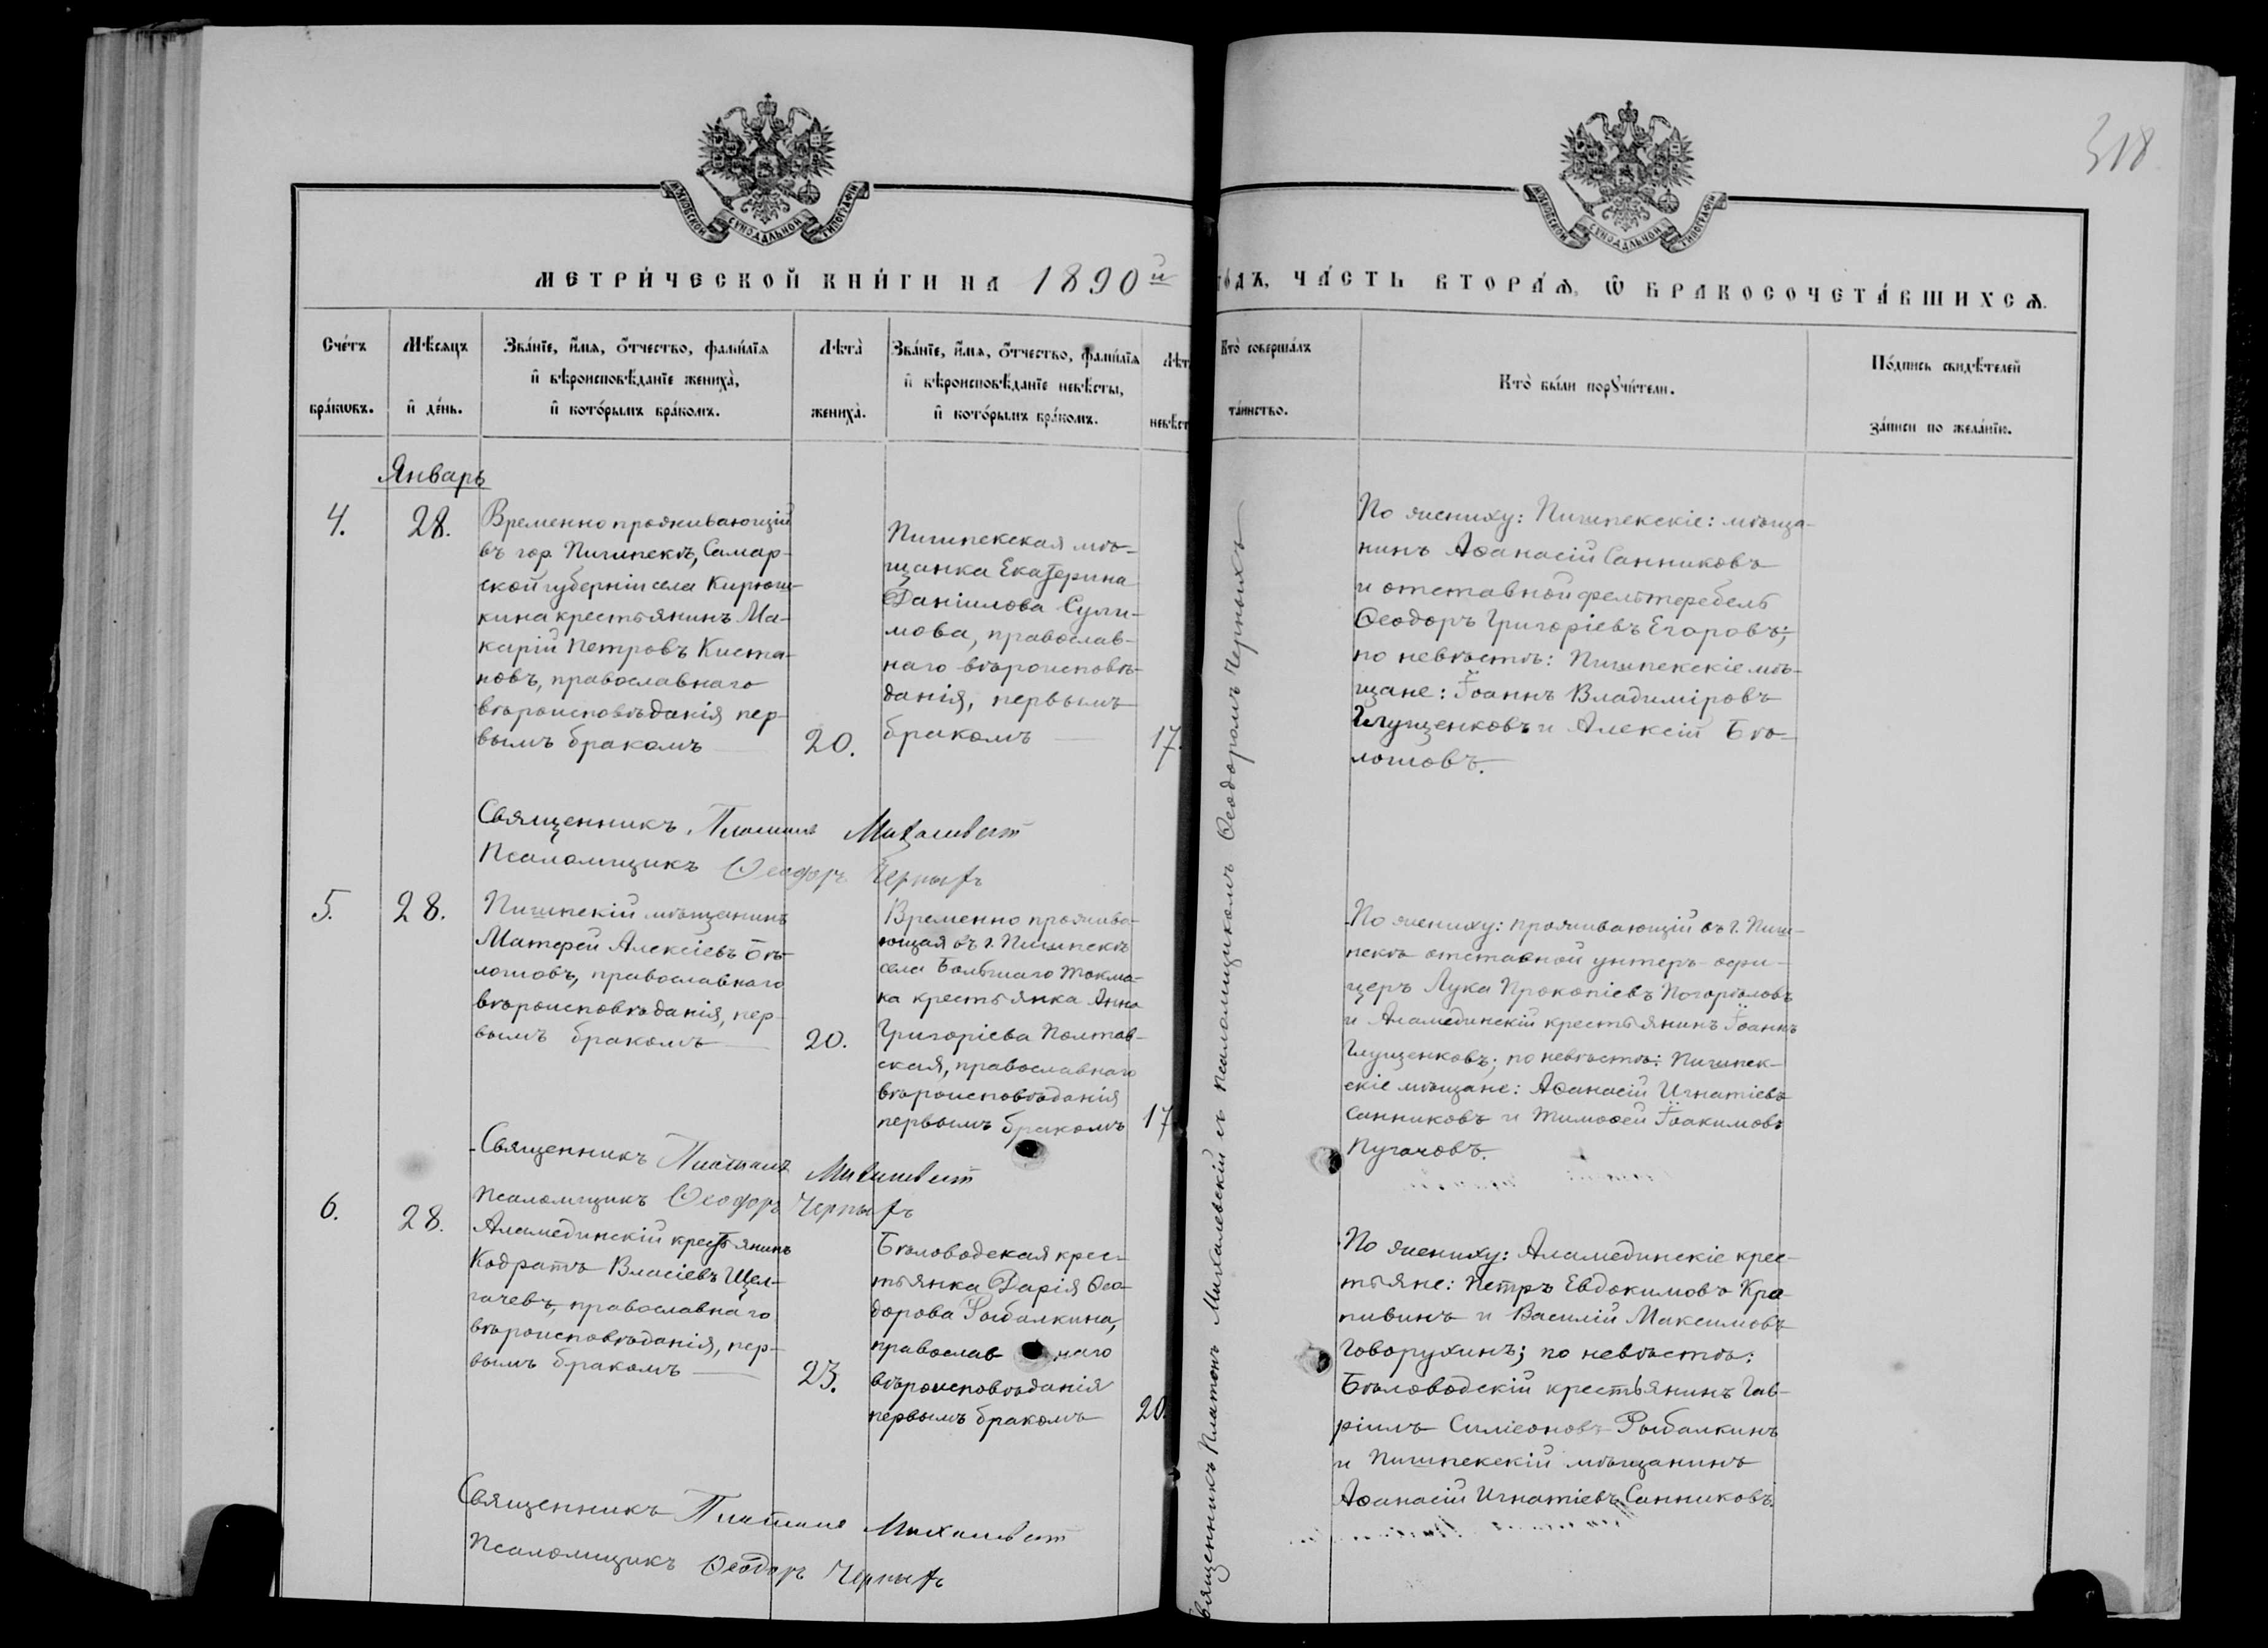 318
МОСКОВСКОЙ СѴНОДАЛЬНОЙ ТИПОГРАФІИ
МОСКОВСКОЙ СѴНОДАЛЬНОЙ ТИПОГРАФІИ
МЕТРИ́ЧЕСКОЙ КНИ́ГИ НА 1890 й
го́дъ, ЧА́СТЬ ВТОРА́Ѧ, Ѡ҆ БРАКОСОЧЕТА́ВШИХСѦ.
Сче́тъ
бра́кѡвъ.
Мѣ́сяцъ
и҆ де́нь.
Зва́нїе, и҆́мѧ, ѻ҆́тчество, фами́лїѧ
и҆ вѣроисповѣ́данїе жениха̀,
и҆ кото́рымъ бра́комъ.
Лѣта̀
жениха̀.
Зва́нїе, и҆́мѧ, ѻ҆́тчество, фами́лїѧ
и҆ вѣроисповѣ́данїе невѣ́сты,
и҆ кото́рымъ бра́комъ.
Лѣт
невѣст
Кто̀ соверша́лъ
та́инство.
Кто̀ бы́ли порꙋчи́тели.
По́дпись свидѣ́телей
за́писи по жела́нїю.
Январь
4.
28.
Временно проживающій
въ гор. Пишпекѣ, Самар-
ской губерніи села Кирюш-
кина крестьянинъ Ма-
карій Петровъ Киста-
новъ, православнаго
вѣроисповѣданія пер-
вымъ бракомъ
20.
Пишпекская мѣ-
щанка Екатерина
Даніилова Сули-
мова, православ-
наго вѣроисповѣ-
данія, первымъ
бракомъ
17.
По жениху: Пишпекскіе: мѣща-
нинъ Аѳанасій Санниковъ
и отставной фельтфебель
Ѳеодоръ Григоріевъ Егоровъ;
по невѣстѣ: Пишпекскіе мѣ-
щане: Іоаннъ Владиміровъ
Глущенковъ и Алексій Бѣ-
лошовъ.
Священникъ Платонъ Михалевскій
Псаломщикъ Ѳеодоръ Черныхъ
5.
28.
Пишпскій мѣщанинъ
Матфей Алексіевъ Бѣ-
лошовъ, православнаго
вѣроисповѣданія, пер-
вымъ бракомъ
20.
Временно прожива-
ющая въ г. Пишпекѣ
села Большаго Токма-
ка крестьянка Анна
Григоріева Полтав-
ская, православнаго
вѣроисповѣданія
первымъ бракомъ
17
По жениху: проживающій въ г. Пиш-
пекѣ отставной унтеръ-офи-
церъ Лука Прокопіевъ Погорѣловъ
и Аламединскій крестьянинъ Іоаннъ
Глущенковъ; по невѣстѣ: Пишпек-
скіе мѣщане: Аѳанасій Игнатіевъ
Санниковъ и Тимоѳей Іоакимовъ
Пугачовъ.
Священникъ Платонъ Михалевскій
Псаломщикъ Ѳеодоръ Черныхъ
6.
28.
Аламединскій крестьянинъ
Кодратъ Власіевъ Щел-
гачевъ, православнаго
вѣроисповѣданія, пер-
вымъ бракомъ
23.
Бѣловодская крес-
тьянка Дарія Ѳео-
дорова Рыбалкина,
православ наго
вѣроисповѣданія
первымъ бракомъ
20.
По жениху: Аламединскіе крес-
тьяне: Петръ Евдокимовъ Кра-
пивинъ и Василій Максимовъ
Говорухинъ; по невѣстѣ:
Бѣловодскій крестьянинъ Гав-
ріилъ Симеоновъ Рыбалкинъ
и Пишпекскій мѣщанинъ
Аѳанасій Игнатіевъ Санниковъ.
Священникъ Платонъ Михалевскій
Псаломщикъ Ѳеодоръ Черныхъ
Священникъ Платонъ Михалевскій съ псаломщикомъ Ѳеодоромъ Черныхъ